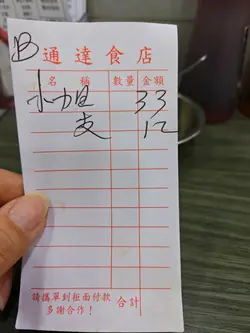 B 通達食店
名 稱 數量 金額
小姐 33
支 12
請攜單到柜面付款 合計
多謝合作！